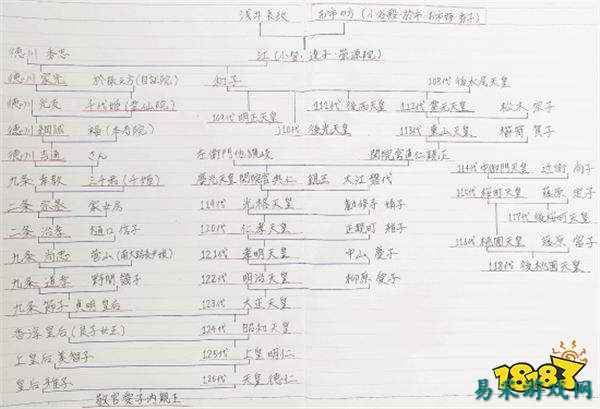 浅井長政 お市の方(小谷殿・於市
江(小督・達子・崇源院)
徳川 秀忠
徳川 家光 於振之方(自証院) 和子 108代 後水尾天皇
徳川 光友 千代姫(霊仙院) 109代 明正天皇 110代 後光天皇 111代 後西天皇 112代 霊元天皇 松木 宗子
徳川 綱誠 福(本寿院) 113代 東山天皇 櫛笥 賀子
徳川 吉通 さん 左衛門佐讃岐 閑院宮直仁親王
114代 中御門天皇 近衛 尚子
九条 幸教 三千君(千姫) 慶光天皇 閑院宮典仁 親王 大江 磐代
115代 桜町天皇 藤原 定子
二条 宗基 家女房 119代 光格天皇 勧修寺 婧子
117代 後桜町天皇
二条 治孝 樋口 信子 120代 仁孝天皇 正親町 雅子
116代 桃園天皇 藤原 富子
九条 尚忠 菅山 121代 孝明天皇 中山 慶子
118代 後桃園天皇
九条 道孝 野間 幾子 122代 明治天皇 柳原 愛子
九条 節子 貞明皇后 123代 大正天皇
香淳皇后(良子女王) 124代 昭和天皇
上皇后 美智子 125代 上皇 明仁
皇后 雅子 126代 天皇 徳仁
敬宮愛子内親王
18183
易采游戏网